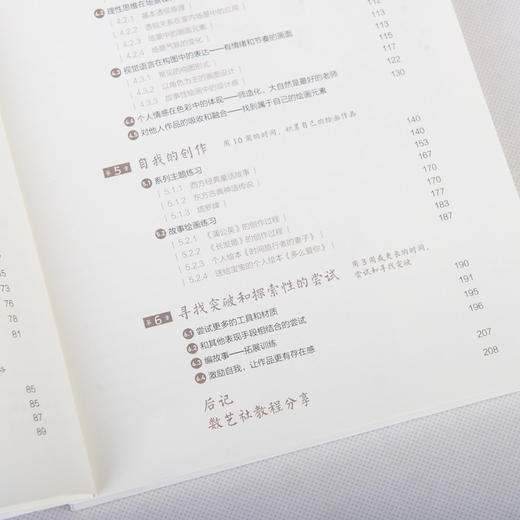 4.2 理性思维在场景
4.2.1 基本透视原理 112
4.2.2 透视关系在室内场景中的应用 113
4.2.3 场景中的画面元素 113
4.2.4 场景气氛的变化 115
4.3 视觉语言在构图中的表达——有情绪和节奏的画面 117
4.3.1 常见的构图形式
4.3.2 以角色为主的画面设计 122
4.3.3 故事性绘画中的设计感
4.4 个人情感在色彩中的体现——师造化，大自然是最好的老师
4.5 对他人作品的吸收和融合——找到属于自己的绘画元素 130
第5章 自我的创作 用10周的时间，积累自己的绘画作品
5.1 系列主题练习 140
5.1.1 西方经典童话故事 140
5.1.2 东方古典神话传说 153
5.1.3 塔罗牌 167
5.2 故事绘画练习 170
5.2.1 《蒲公英》的创作过程 170
5.2.2 《长发姬》的创作过程 177
5.2.3 个人绘本《时间旅行者的妻子》 183
5.2.4 送给宝宝的个人绘本《多么爱你》 187
第6章 寻找突破和探索性的尝试 用3周或更长的时间，尝试和寻找突破
6.1 尝试更多的工具和材质 190
6.2 和其他表现手段相结合的尝试 191
6.3 编故事——拓展训练 195
6.4 激励自我，让作品更有存在感 196
后记 207
数艺社教程分享 208
73
74
75
76
78
78
81
85
85
87
89